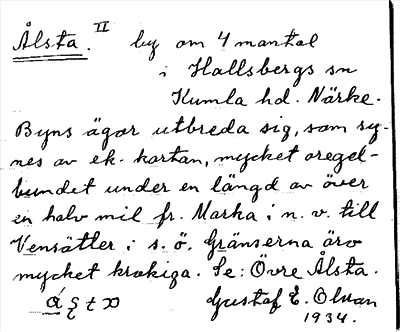 Ålsta. II by om 4 mantal
i Hallsbergs sn
Kumla hd. Närke.
Byns ägor utbreda sig, som sy-
nes av ek. kartan, mycket oregel-
bundet under en längd av över
en halv mil fr. Marka i n. v. till
Vensätter i s. ö. Gränserna äro
mycket krokiga. Se: Övre Ålsta.
Gustaf E. Olsson
1934.